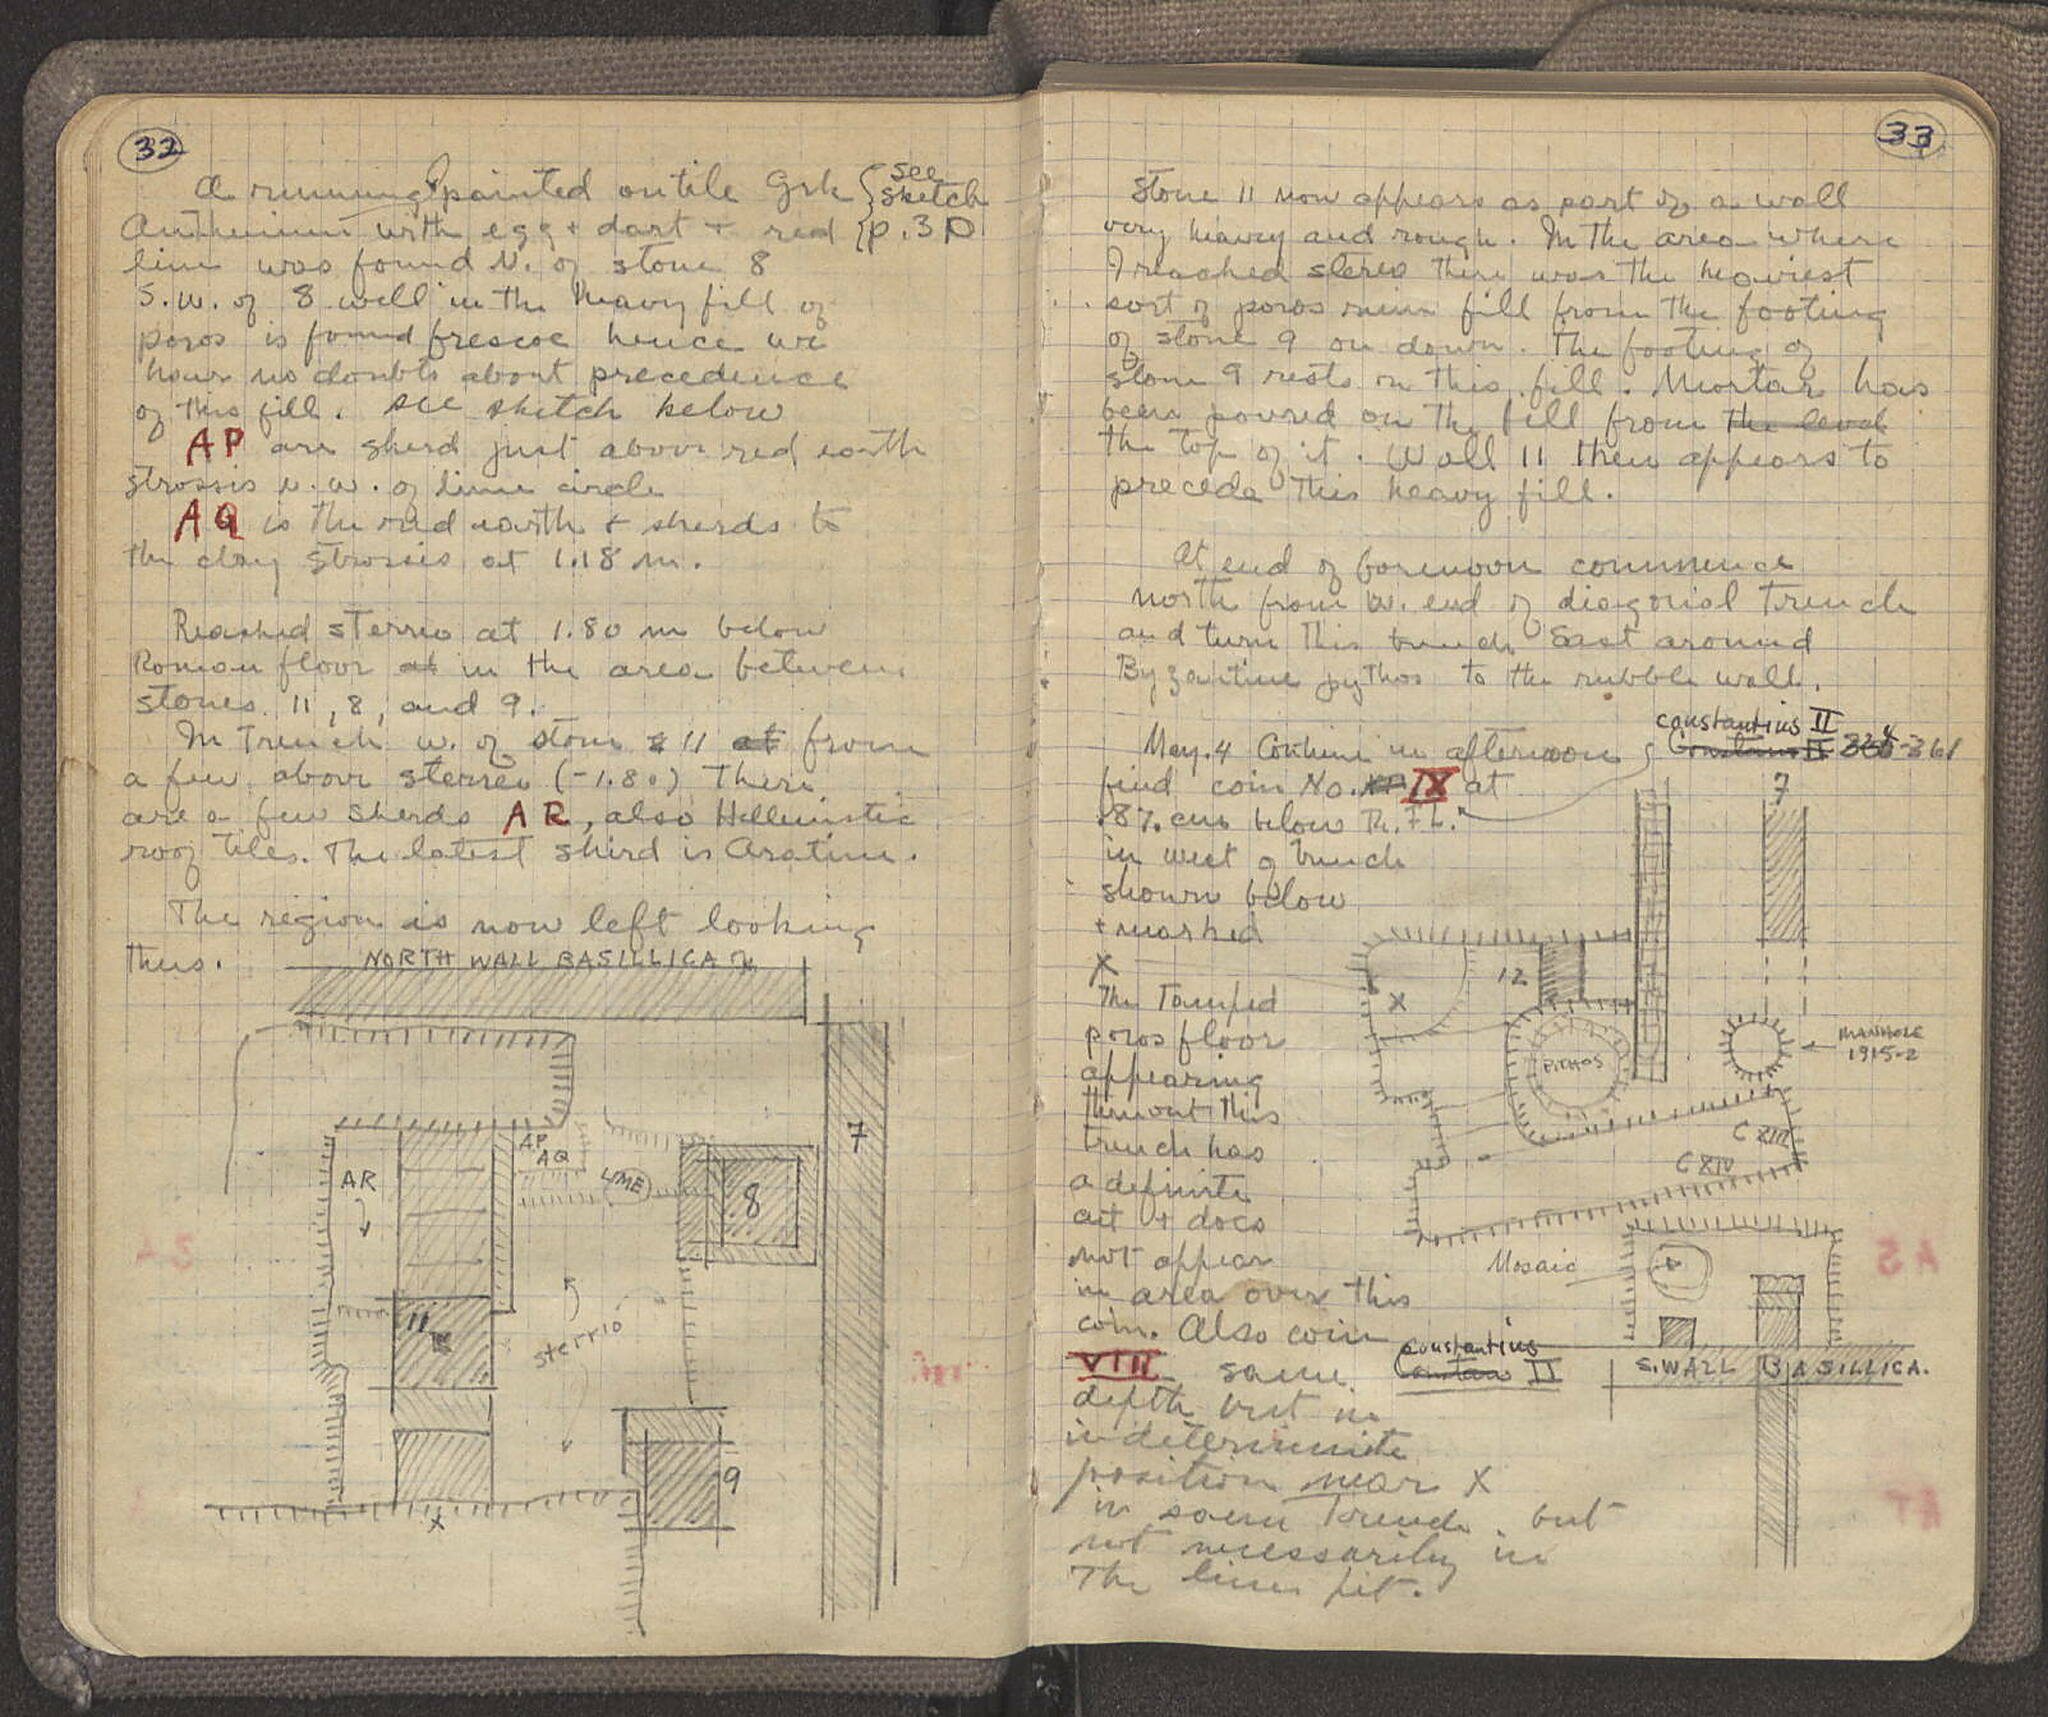 32
A running & painted on tile Grk { see sketch
Anthemium with egg + dart + red { p. 30
line was found N. of stone 8
S.W. of 8 well in the heavy fill of
poros is found frescoe hence we
have no doubts about precedence
of this fill. see sketch below
AP are sherd just above red earth
strossis N.W. of lime circle
AQ is the red earth + sherds to
the clay strossis at 1.18 m.
Reached sterreo at 1.80 m below
Roman floor at in the area between
stones 11, 8, and 9.
In Trench W. of stone 11 at from
a few above sterreo (-1.80) There
are a few sherds AR, also Hellenistic
roof tiles. The latest sherd is Aratine.
The region is now left looking
thus.
NORTH WALL BASILLICA
7
AP
AQ
AR
LIME
8
11
sterrio
9
X
33
Stone 11 now appears as part of a wall
very heavy and rough. In the area where
I reached stereo there was the heaviest
sort of poros ruin fill from the footing
of stone 9 on down. The footing of
stone 9 rests on this fill. Mortar has
been poured on the fill from the level
the top of it. Wall 11 then appears to
precede this heavy fill.
At end of forenoon commence
north from W. end of diagonal trench
and turn this trench East around
Byzantine pythos to the rubble wall.
constantius II
May. 4 Continue in afternoon Constans II 324-361
find coin No. IX at
.87. cms below Th. FL.
in west of trench
shown below
+ marked
X
The Tamped
poros floor
appearing
thruout this
trench has
a definite
cut + does
not appear
in area over this
coin. Also coin
constantius
VIII same. Constans II
depth but in
indeterminite
position near X
in same Trench. but
not necessarily in
The lime pit.
7
12
X
PITHOS
MANHOLE
1915-2
C XIII
C XIV
Mosaic
S. WALL BASILLICA.